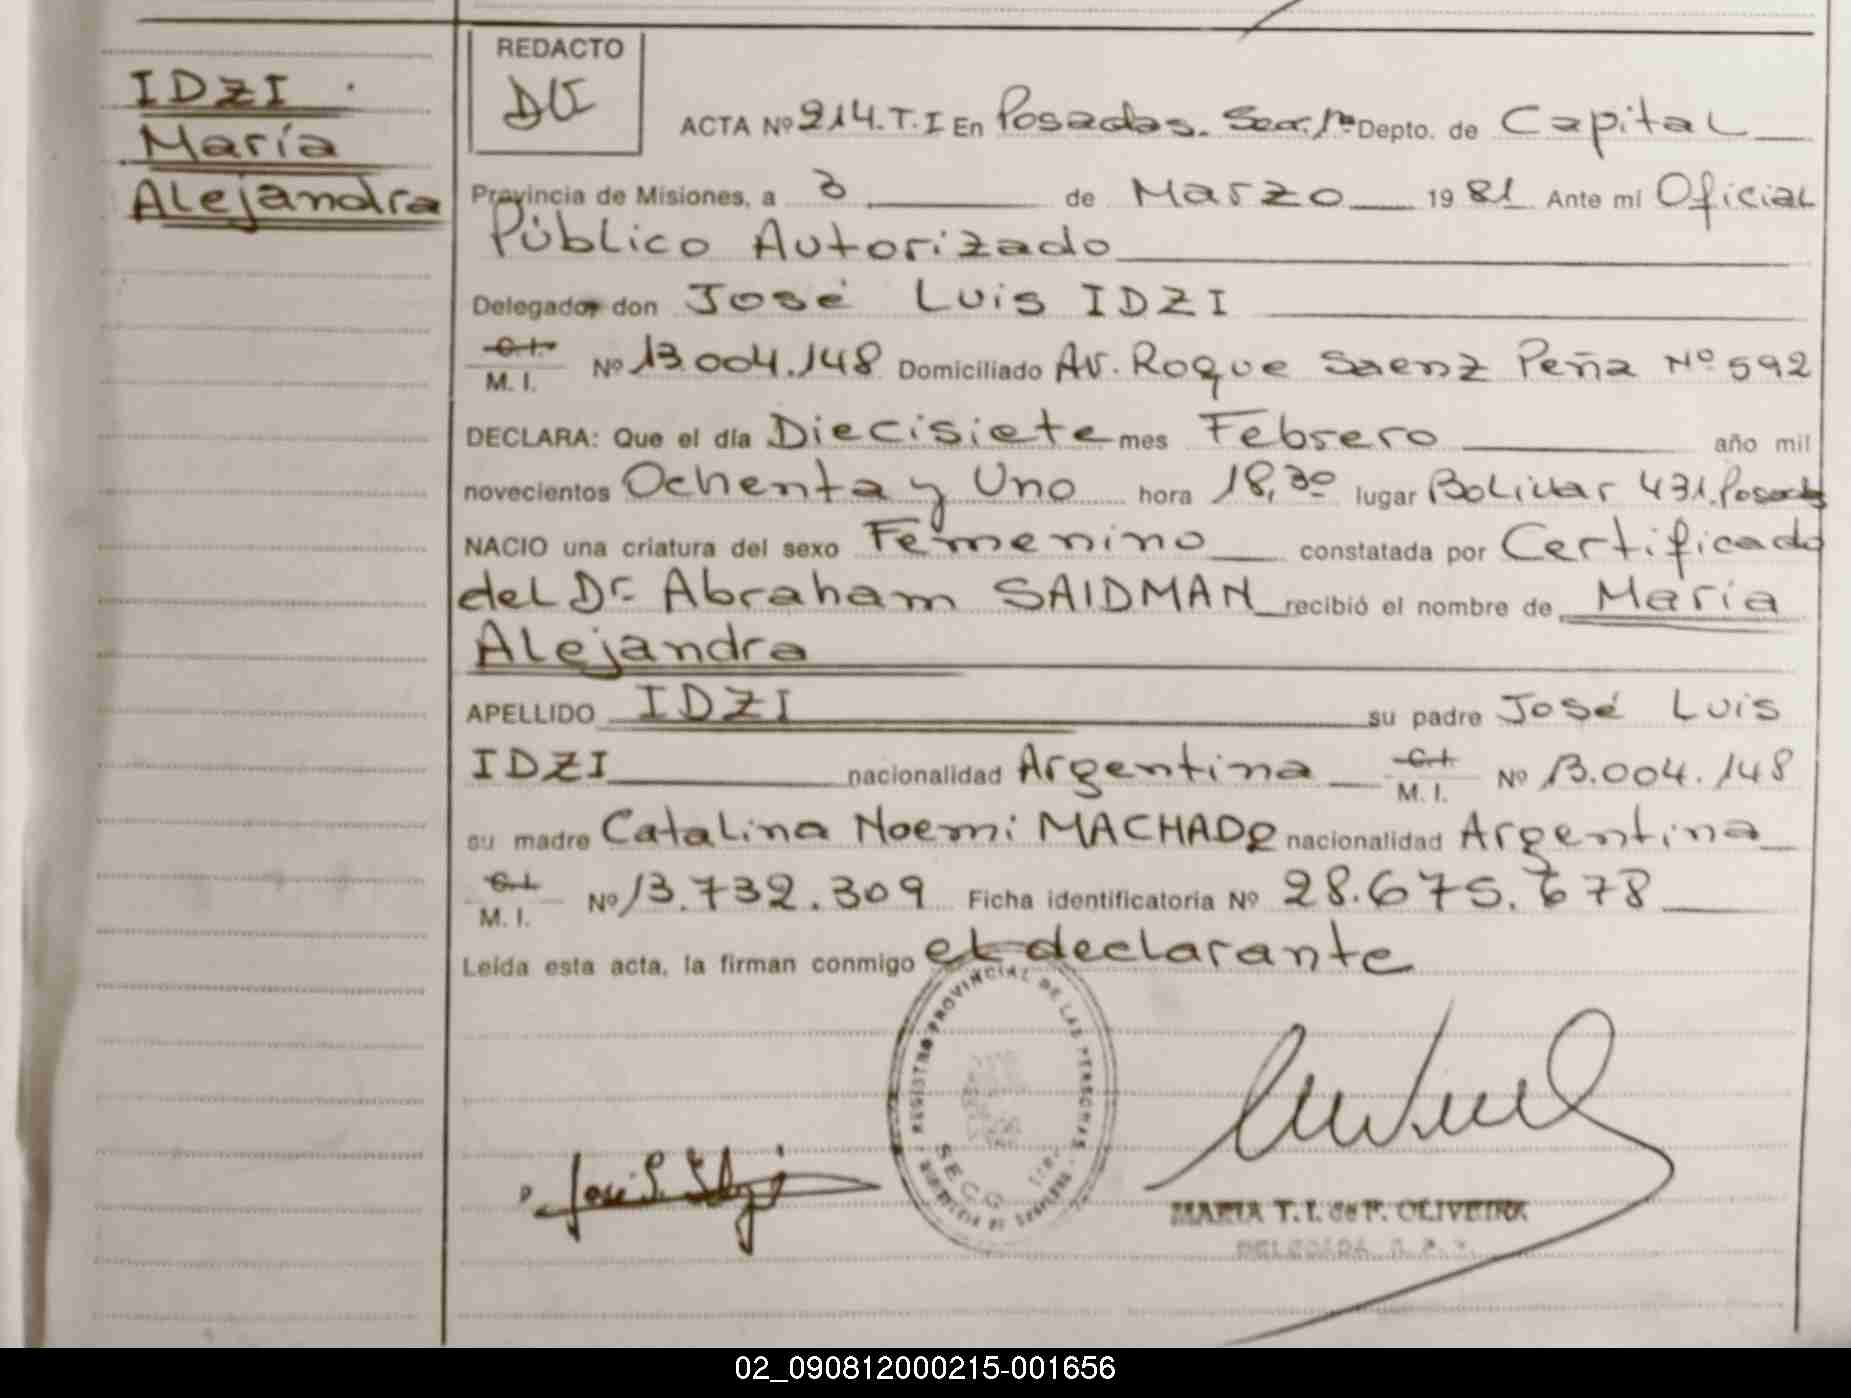 IDZI
María
Alejandra
REDACTO
ACTA Nº 214.T.I En Posadas. Secc. 1ª Depto. de Capital
Provincia de Misiones, a 3 de Marzo 1981 Ante mí Oficial
Público Autorizado
Delegado don José Luis IDZI
C.I. M. I. Nº 13.004.148 Domiciliado Av. Roque Saenz Peña Nº 592
DECLARA: Que el día Diecisiete mes Febrero año mil
novecientos Ochenta y Uno hora 18,30 lugar Bolivar 431. Posadas
NACIO una criatura del sexo Femenino constatada por Certificado
del Dr. Abraham SAIDMAN recibió el nombre de María
Alejandra
APELLIDO IDZI su padre José Luis
IDZI nacionalidad Argentina C.I. M. I. Nº 13.004.148
su madre Catalina Noemi MACHADO nacionalidad Argentina
C.I. M. I. Nº 13.732.309 Ficha identificatoria Nº 28.675.678
Leída esta acta, la firman conmigo el declarante
REGISTRO PROVINCIAL DE LAS PERSONAS
MARIA T. I. de F. OLIVEIRA
DELEGADA R. P. P.
02_090812000215-001656